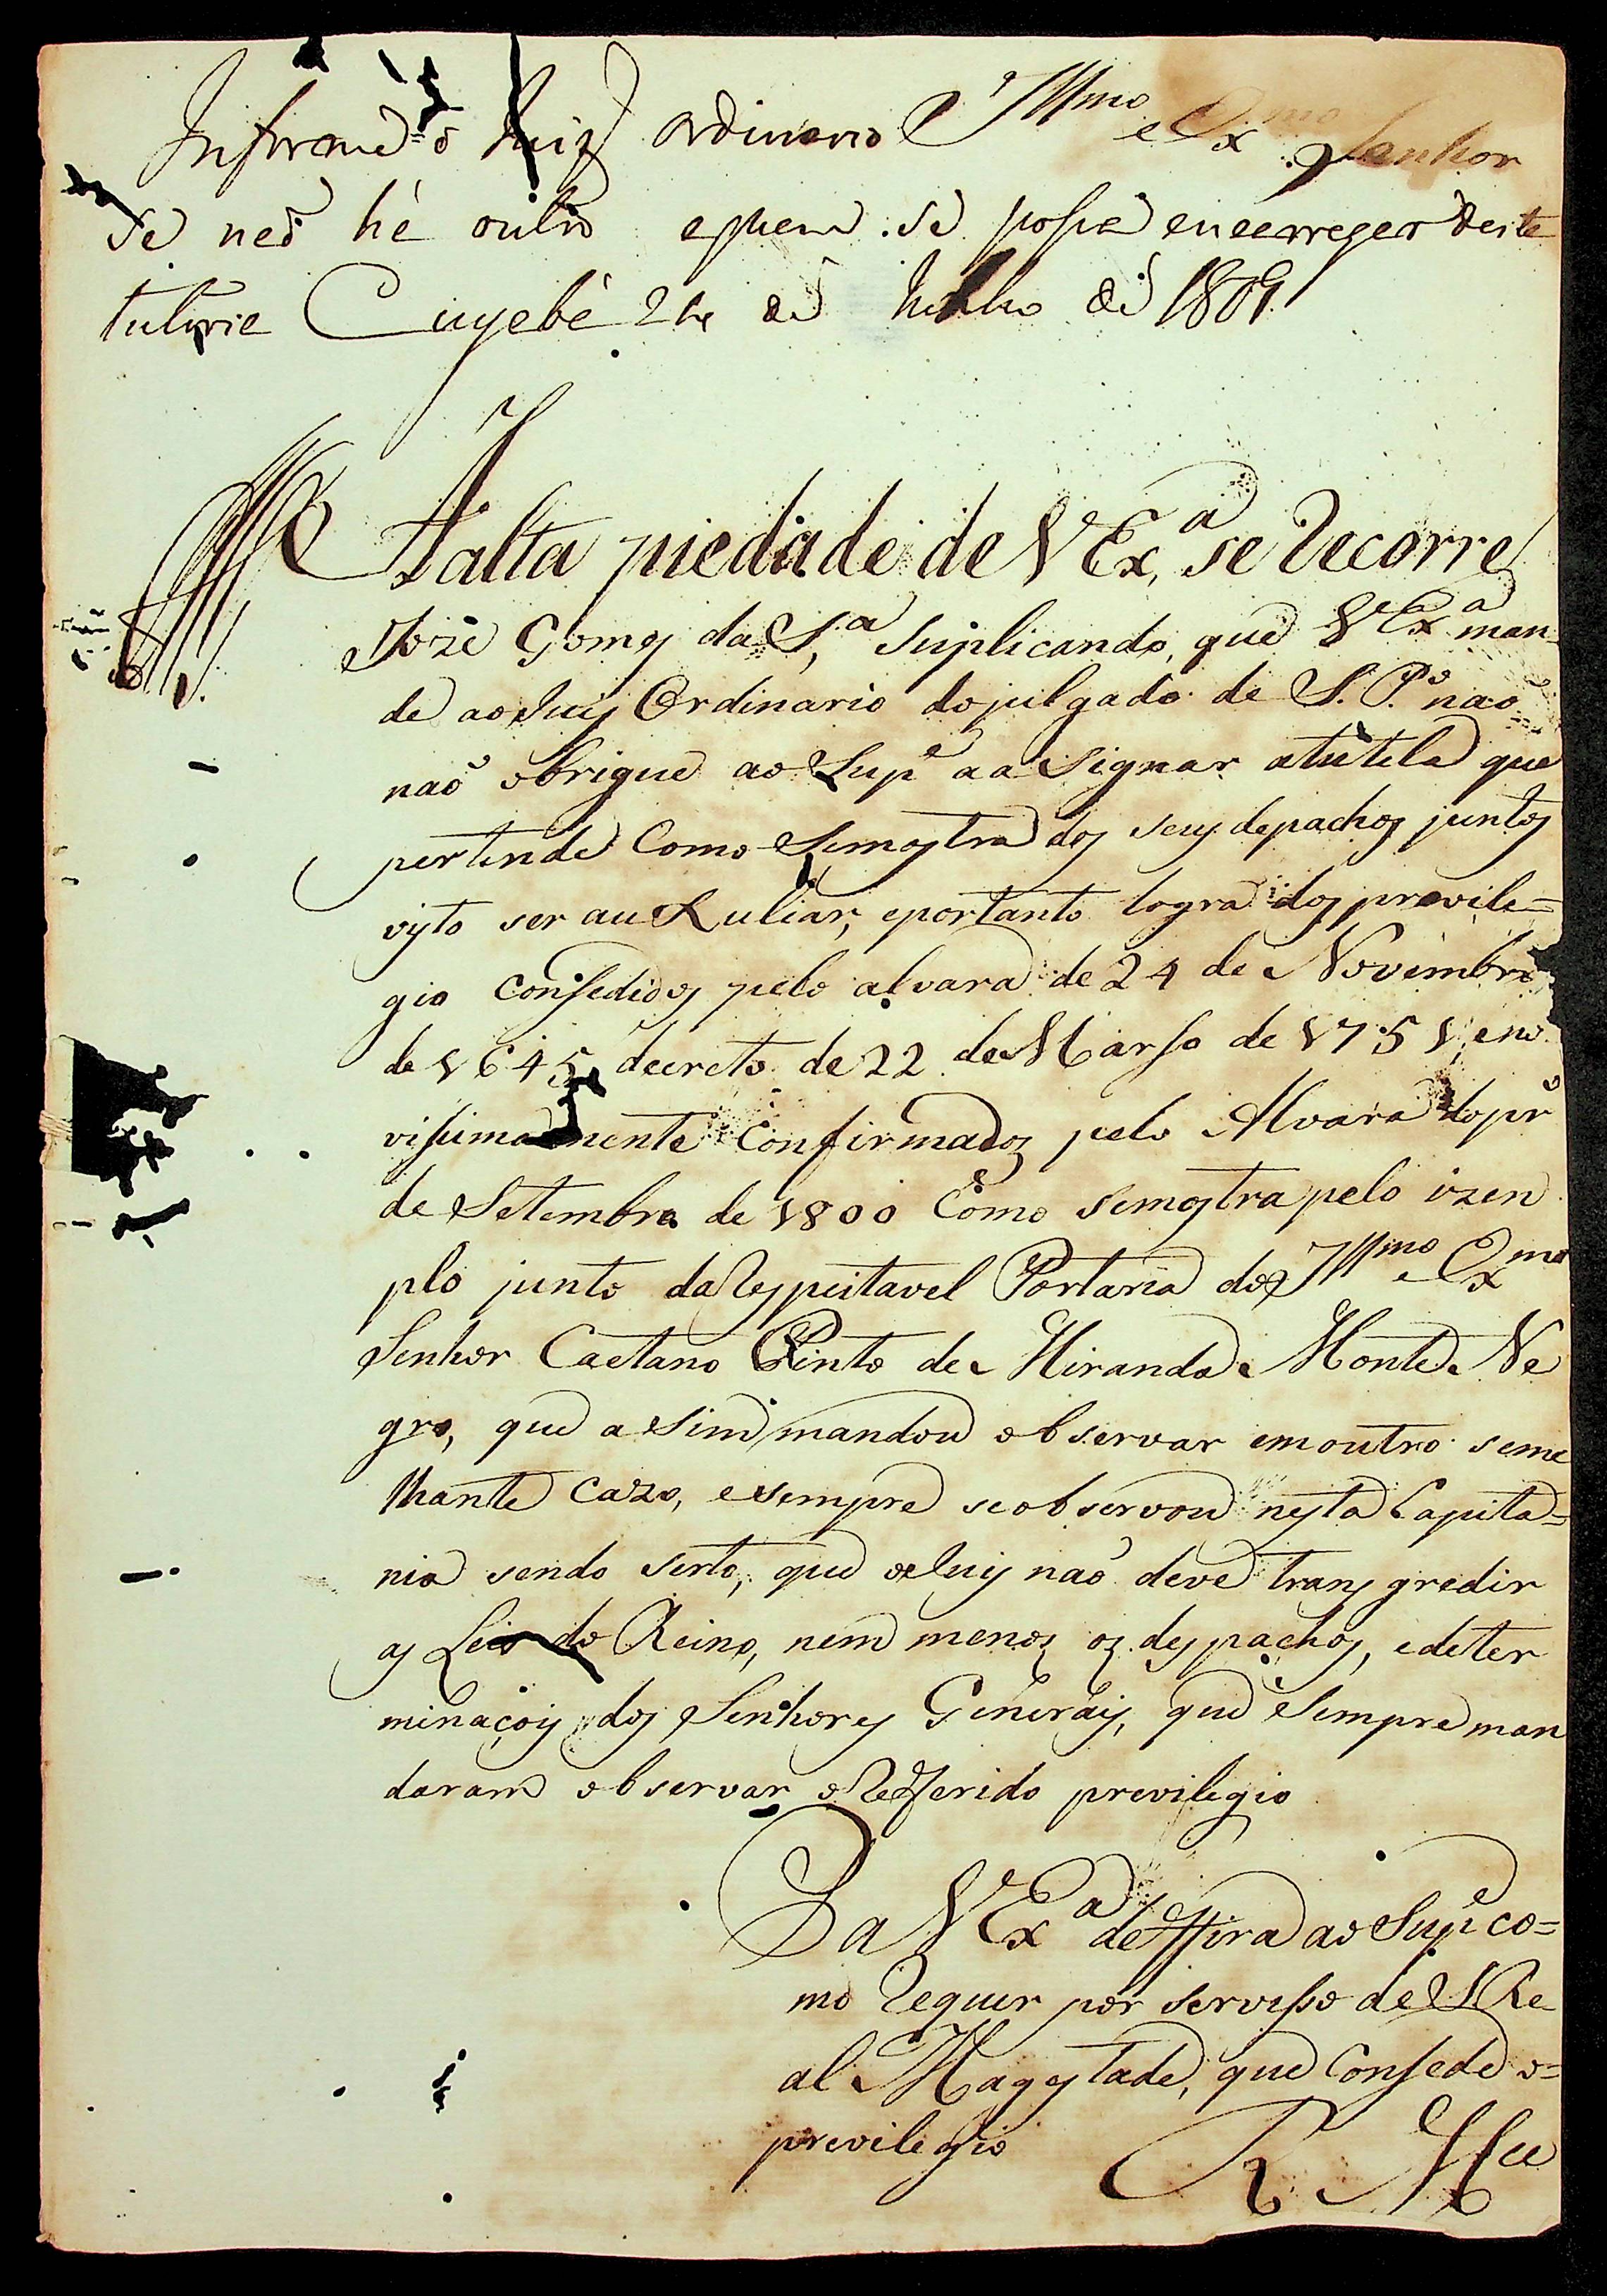 Illmo e Exmo Senhor
Informe o Juiz ordinario
se naõ hé outro aquem se possa encarregar desta
tutoria Cuyabá 24 de Julho de 1809
A alta piedade de VExa, se recorre
Joze Gomes da Sa, Suplicando, que VExa man-
de ao Juis Ordinario do julgado de S. Po nao
naõ obrigue ao Supe a a Signar atutela que
pertende Como Semostra dos seus depachos juntos
visto ser auxuliar, eportanto logra dos previle=
gio consedidos pelo alvara de 24 de Novembro
de 1645, decreto de 22 de Marso de 1751, eno
vissimamente Confirmados pelo Alvara do pro
de Setembro de 1800 Como semostra pelo izen
plo junto da Respeitavel Portaria do Illmo e Exmo
Senhor Caetano Pinto de Miranda Monte Ne
gro, que a Sim mandou observar emoutro seme
lhante cazo, esempre seobservou nesta Capita=
nia sendo serto, que o Juis naõ deve transgredir
as Leis do Reino, nem menos os despachos, edeter
minaçois dos Senhores Generais, que Sempre man
daram observar o Refferido previlegio
Pa VExa deffira ao Supe co=
mo Requer por servisso de S Re
al Magestade, que Consede o=
previlegio
R Mce